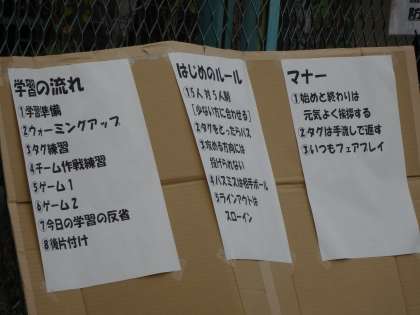 学習の流れ
1学習準備
2ウォーミングアップ
3タグ練習
4チーム作戦練習
5ゲーム1
6ゲーム2
7今日の学習の反省
8後片付け
はじめのルール
1 5人対5人制
[少ない方に合わせる]
2タグをとったらパス
3攻める方向には
投げられない
4パスミスは相手ボール
5ラインアウトは
スローイン
マナー
1始めと終わりは
元気よく挨拶する
2タグは手渡しで返す
3いつもフェアプレイ
防